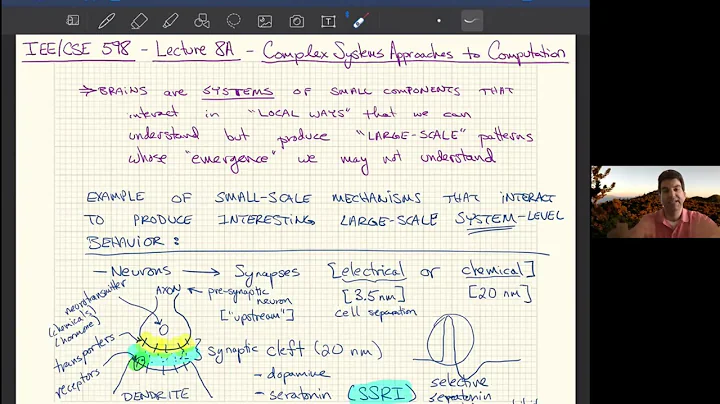 IEE/CSE 598 - Lecture 8A - Complex Systems Approaches to Computation
→ BRAINS are SYSTEMS OF SMALL COMPONENTS THAT
interact in "LOCAL WAYS" that we can
understand but produce "LARGE-SCALE" patterns
whose "emergence" we may not understand
EXAMPLE OF SMALL-SCALE MECHANISMS THAT INTERACT
TO PRODUCE INTERESTING LARGE-SCALE SYSTEM-LEVEL
BEHAVIOR:
- Neurons → Synapses [electrical or chemical]
[3.5nm] [20 nm]
cell separation
neurotransmitter
(chemicals)
(hormone)
AXON ← pre-synaptic
neuron
["upstream"]
transporters
receptors
Synaptic cleft (20 nm)
- dopamine
- seratonin (SSRI)
DENDRITE
selective
seratonin